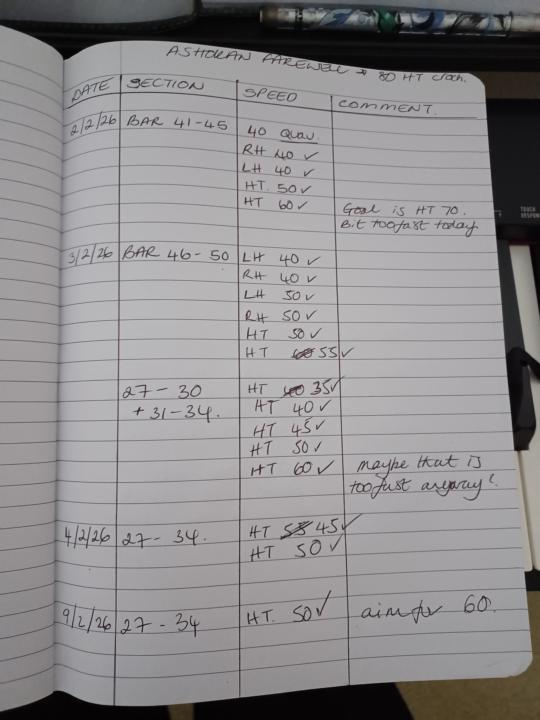 ASHOKAN FAREWELL → 80 HT Croch.
DATE SECTION SPEED COMMENT.
2/2/26 BAR 41-45 40 Quav.
RH 40 ✓
LH 40 ✓
HT. 50 ✓
HT 60 ✓ Goal is HT 70.
Bit too fast today
3/2/26 BAR 46-50 LH 40 ✓
RH 40 ✓
LH 50 ✓
RH 50 ✓
HT 50 ✓
HT 60 55 ✓
27-30 HT 40 35 ✓
+ 31-34. HT 40 ✓
HT 45 ✓
HT 50 ✓
HT 60 ✓ maybe that is
too fast anyway!
4/2/26 27-34. HT 55 45 ✓
HT 50 ✓
9/2/26 27-34 HT. 50 ✓ aim for 60.
TOUCH